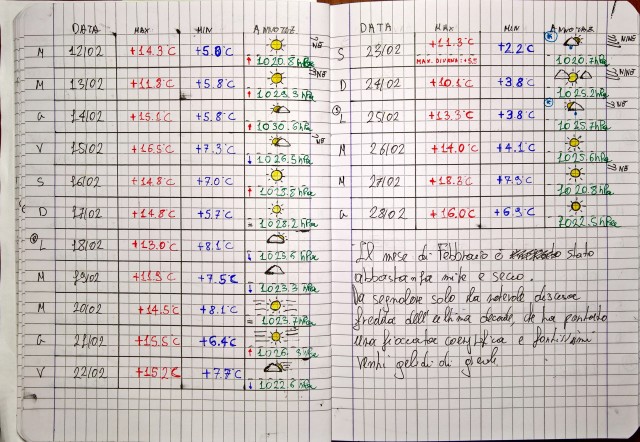 DATA MAX MIN ANNOTAZ
M 12/02 +14.3°C +5.8°C NE
↑ 1020.8 hPa
M 13/02 +11.8°C +5.8°C NE
↑
G 14/02 +15.1°C +5.8°C
↑ 1030.6 hPa
V 15/02 +16.5°C +7.3°C NE
↓ 1026.5 hPa
S 16/02 +14.8°C +7.0°C
↑ 1025.8 hPa
D 17/02 +14.8°C +5.7°C
= 1028.2 hPa
L 18/02 +13.0°C +8.1°C
↓ 1023.6 hPa
M 19/02 +7.5°C
↓ 1023.3 hPa
M 20/02 +14.5°C +8.1°C
= 1023.7 hPa
G 21/02 +15.5°C +6.4°C
↑ 1026.3 hPa
V 22/02 +15.2°C +7.7°C
↓ 1022.6 hPa
DATA MAX MIN ANNOTAZ
S 23/02 +11.3°C +2.2°C NNE
MAX. DIURNA: 1020.7 hPa
D 24/02 +10.1°C +3.8°C NNE
1025.2 hPa
L 25/02 +13.3°C +3.8°C NE
1025.7 hPa
M 26/02 +14.0°C +4.1°C
1025.6 hPa
M 27/02 +18.3°C NE
1020.8 hPa
G 28/02 +16.0°C +6.9°C
1022.5 hPa
Il mese di Febbraio è stato
abbastanza mite e secco.
Da segnalare solo la notevole discesa
fredda dell'ultima decade, che ha portato
una fioccata coreografica e fortissimi
venti gelidi di grecale